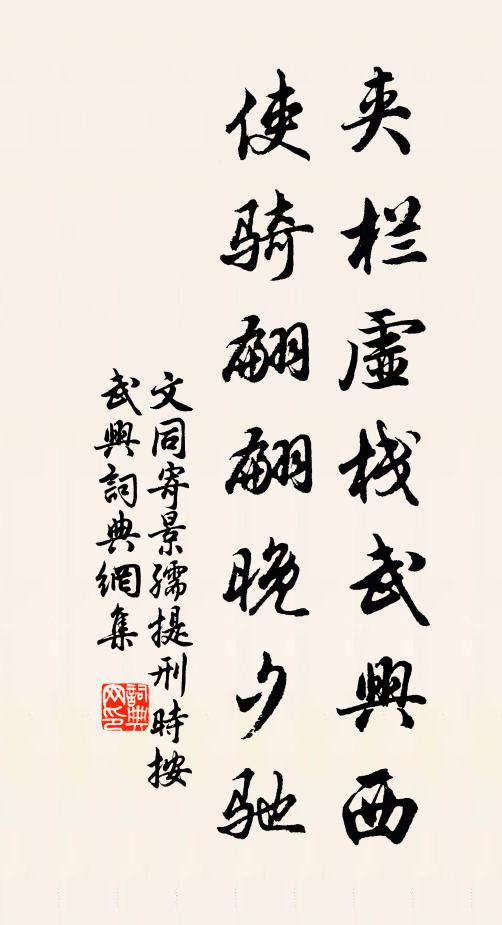 夹栏虚栈武興西
使骑翩翩晚夕驰
文同寄景孺提刑時按
武興詞典網集
詞典网印